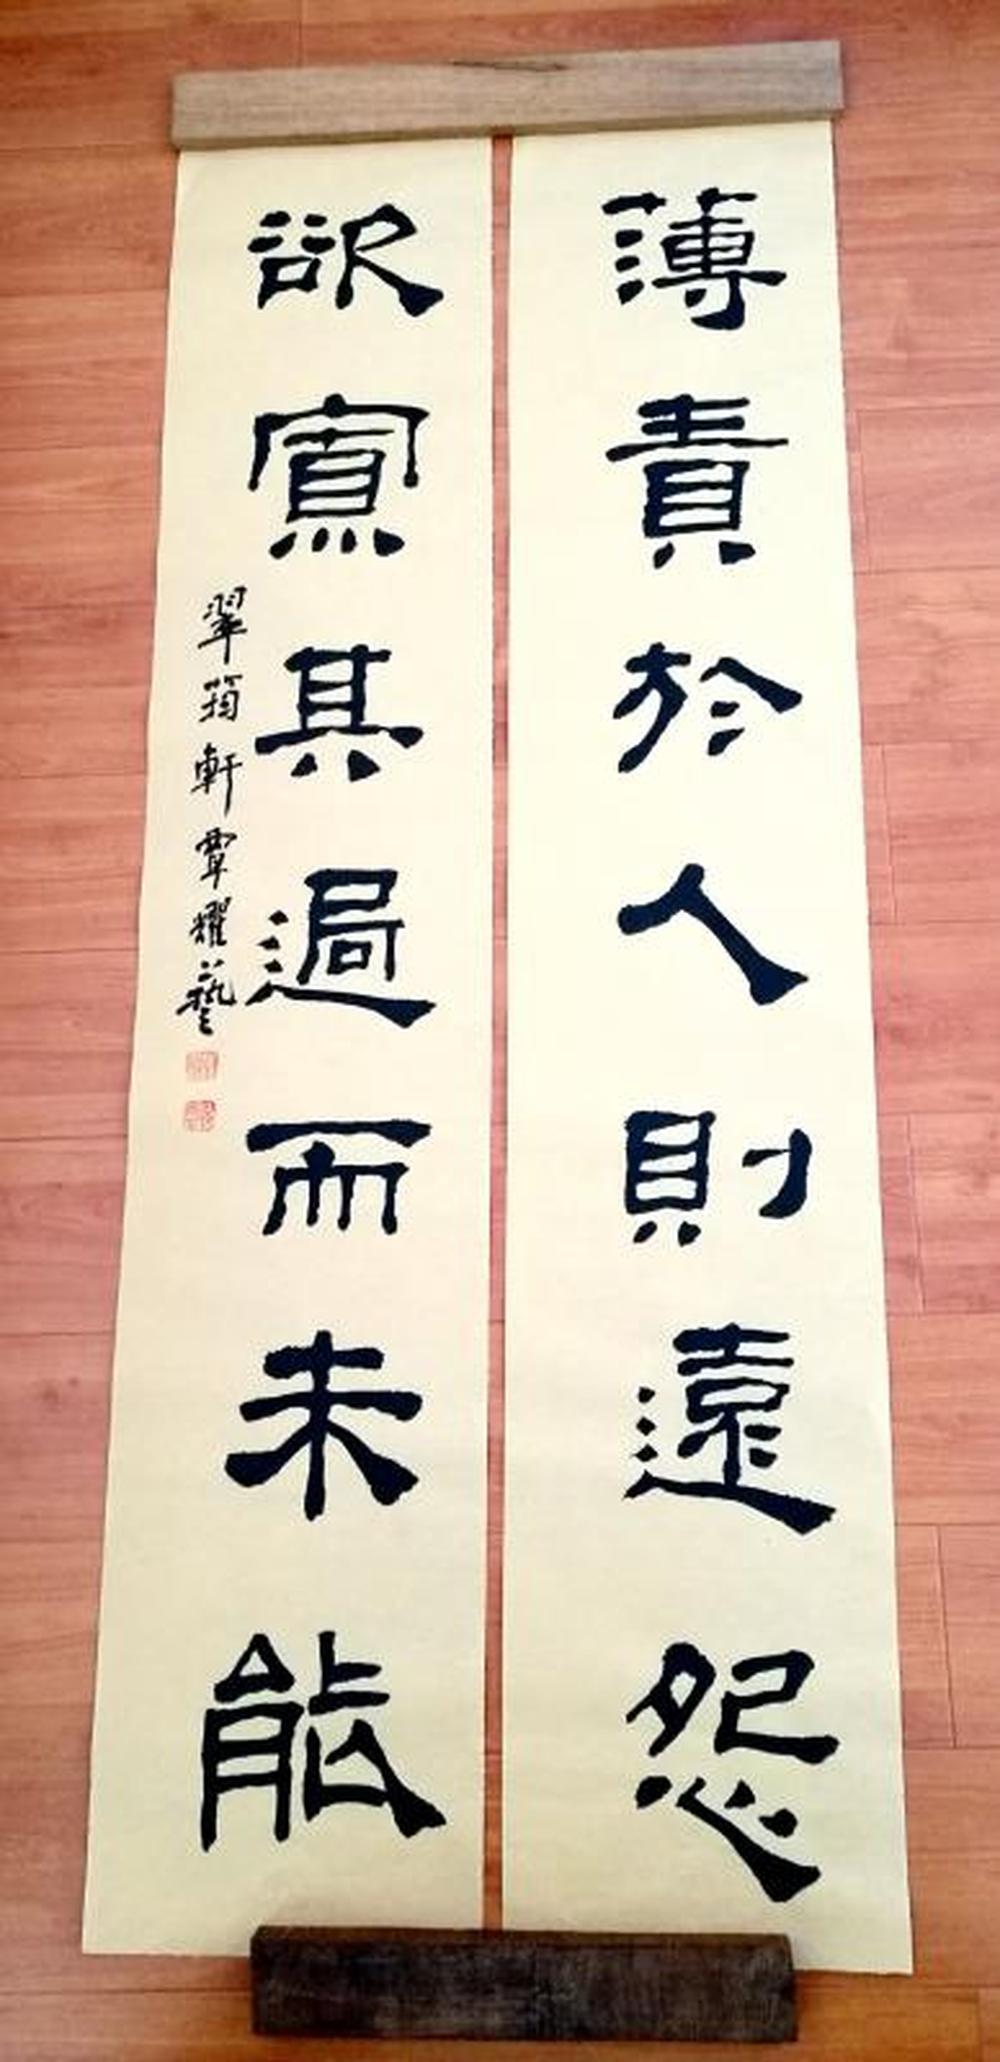 薄責於人則遠怨
欲寡其過而未能
翠筠軒覃耀藝